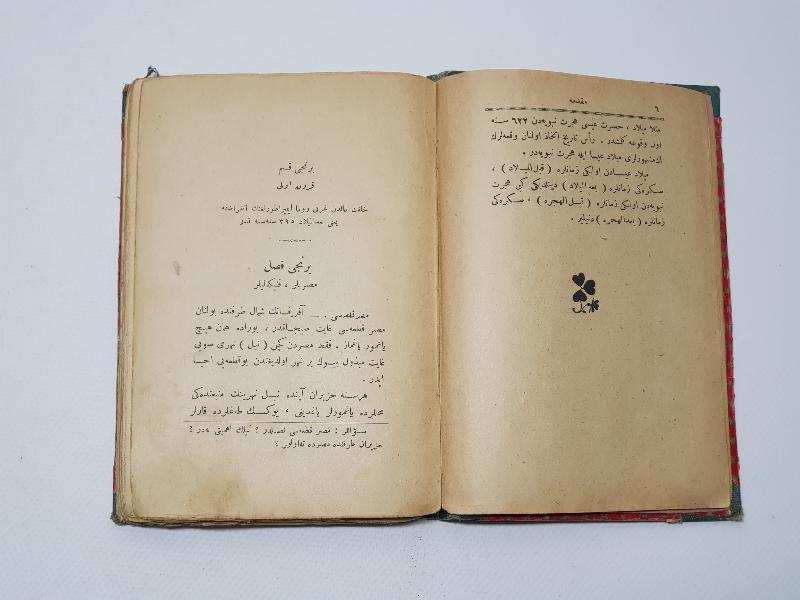 ٦
مقدمه
مثلا میلاد ، حضرت عیسی هجرت نبویه‌دن ٦٢٢ سنه
اول وقوعه کلمشدر . رأس تاریخ اتخاذ اولنان وقعه‌لرك
اك مشهورلری میلاد عیسا ایله هجرت نبویه‌در .
میلاد عیسادن اولکی زمانلره ( قبل‌المیلاد ) ،
صکره‌کی زمانلره ( بعدالمیلاد ) دینلدیکی کبی هجرت
نبویه‌دن اولکی زمانلره ( قبل‌الهجره ) ، صکره‌کی
زمانلره ( بعدالهجره ) دنیلیر .
برنجی قسم
قرون اولی
خلقت عالمدن غربی روما ایمپراطورلغنك انقراضنه
یعنی بعدالمیلاد ٣٩٥ سنه‌سنه قدر
برنجی فصل
مصریلر ، فنیکه‌لیلر
مصر قطعه‌سی . — آفریقانك شمال طرفنده بولنان
مصر قطعه‌سی غایت صیجاقدر ، بوراده همان هیچ
یاغمور یاغماز . فقط مصردن کچن ( نیل ) نهری صویی
غایت مبذول بیوك بر نهر اولدیغندن بو قطعه‌یی احیا
ایدر .
هر سنه حزیران آینده نیل نهرینك منبعنده‌کی
محللرده یاغمورلر یاغدیغی ، یوکسك طاغلرده قارلر
سؤاللر : مصر قطعه‌سی نصلدر ؟ نیلك اهمیتی نه‌در ؟
حزیران ظرفنده مصرده نه اولور ؟